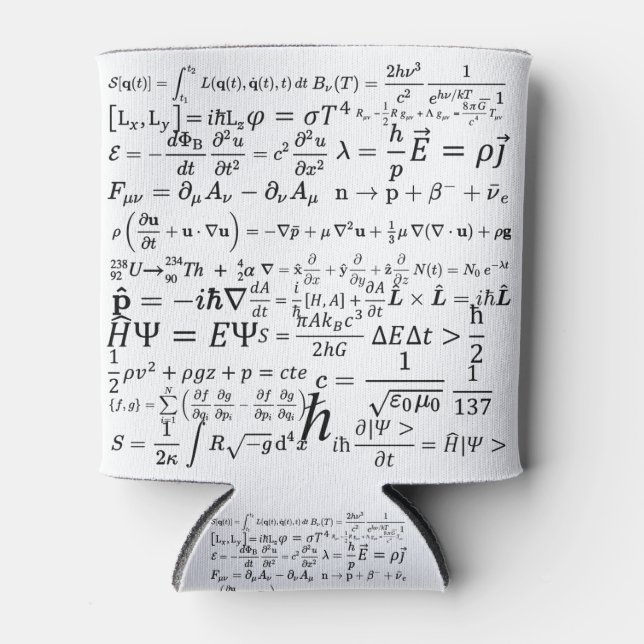 𝒮[𝐪(t)] = ∫_{t₁}^{t₂} L(𝐪(t), 𝐪̇(t), t) dt B_ν(T) = \frac{2hν³}{c²} \frac{1}{e^{hν/kT} − 1}
[L_x, L_y] = iħL_z φ = σT⁴ R_{μν} − \frac{1}{2} R g_{μν} + Λ g_{μν} = \frac{8πG}{c⁴} T_{μν}
ℰ = −\frac{dΦ_B}{dt} \frac{∂²u}{∂t²} = c² \frac{∂²u}{∂x²} λ = \frac{h}{p} E⃗ = ρj⃗
F_{μν} = ∂_μ A_ν − ∂_ν A_μ n → p + β⁻ + ν̄_e
ρ (\frac{∂𝐮}{∂t} + 𝐮 · ∇𝐮) = −∇p̄ + μ ∇²𝐮 + \frac{1}{3} μ ∇(∇ · 𝐮) + ρ𝐠
^{238}_{92}U → ^{234}_{90}Th + ^{4}_{2}α ∇ = x̂ \frac{∂}{∂x} + ŷ \frac{∂}{∂y} + ẑ \frac{∂}{∂z} N(t) = N₀ e^{−λt}
𝐩̂ = −iħ∇ \frac{dA}{dt} = \frac{i}{ħ}[H, A] + \frac{∂A}{∂t} L̂ × L̂ = iħL̂
ĤΨ = EΨ S = \frac{πAk_Bc³}{2hG} ΔE Δt > \frac{ħ}{2}
\frac{1}{2}ρv² + ρgz + p = cte c = \frac{1}{\sqrt{ε₀ μ₀}} \frac{1}{137}
{f, g} = ∑_{i=1}^{N} (\frac{∂f}{∂q_i} \frac{∂g}{∂p_i} − \frac{∂f}{∂p_i} \frac{∂g}{∂q_i}) ħ
S = \frac{1}{2κ} ∫ R\sqrt{−g} d⁴x iħ \frac{∂|Ψ >}{∂t} = Ĥ|Ψ >
𝒮[𝐪(t)] = ∫_{t₁}^{t₂} L(𝐪(t), 𝐪̇(t), t) dt B_ν(T) = \frac{2hν³}{c²} \frac{1}{e^{hν/kT} − 1}
[L_x, L_y] = iħL_z φ = σT⁴
ℰ = −\frac{dΦ_B}{dt} \frac{∂²u}{∂t²} = c² \frac{∂²u}{∂x²} λ = \frac{h}{p} E⃗ = ρj⃗
F_{μν} = ∂_μ A_ν − ∂_ν A_μ n → p + β⁻ + ν̄_e